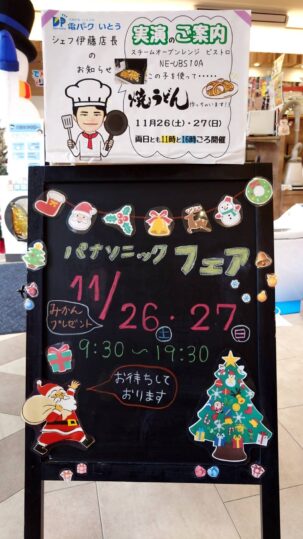 電パーク いとう
シェフ伊藤店長
の
お知らせ
実演のご案内
スチームオーブンレンジ ビストロ
NE-UBS10A
この子を使って・・・・・
焼うどん
作っちゃいます!!
11月26(土)・27(日)
両日とも11時と16時ごろ開催
パナソニック フェア
11/26(土)・27(日)
みかん
プレゼント
9:30～19:30
お待ちして
おります